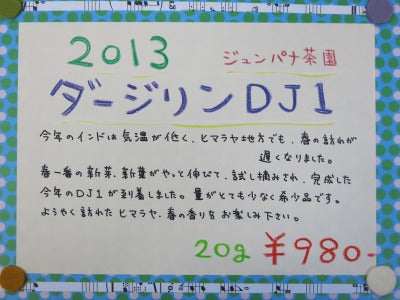 2013
ジュンパナ茶園
ダージリンDJ1
今年のインドは気温が低く、ヒマラヤ地方でも、春の訪れが
遅くなりました。
春一番の新芽、新葉がやっと伸びて、試し摘みされ、完成した
今年のDJ1が到着しました。量がとても少なく希少品です。
ようやく訪れたヒマラヤ、春の香りをお楽しみ下さい。
20g ¥980-